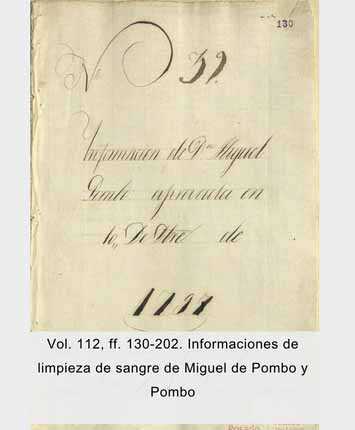 130
No
Informacion de Dn Miguel
Pombo aprovada en
De de
1797
Vol. 112, ff. 130-202. Informaciones de
limpieza de sangre de Miguel de Pombo y
Pombo